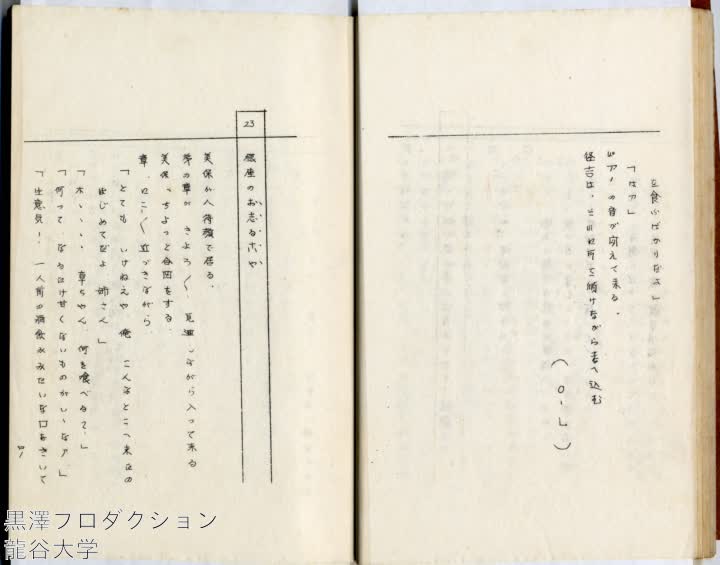 を食ふばかりなよ」
「はァ」
ピアノの音が冴えて来る。
径吉は、それに耳を傾けながら考へ込む
(O・L)
23
銀座のおしるこや
美保が人待顔で居る。
弟の章が きょろ〱 見廻しながら入って来る
美保、ちょっと合図をする。
章、にこ〱 近づきながら
「とても いけねえや 俺 こんなとこへ来たの
はじめてだよ 姉さん」
「ホ、、、、 章ちゃん、何を喰べるって?」
「何って なるたけ甘くないものがいゝなァ」
「生意気!、 一人前の酒飲みみたいな口をきいて
黒澤プロダクション
龍谷大学